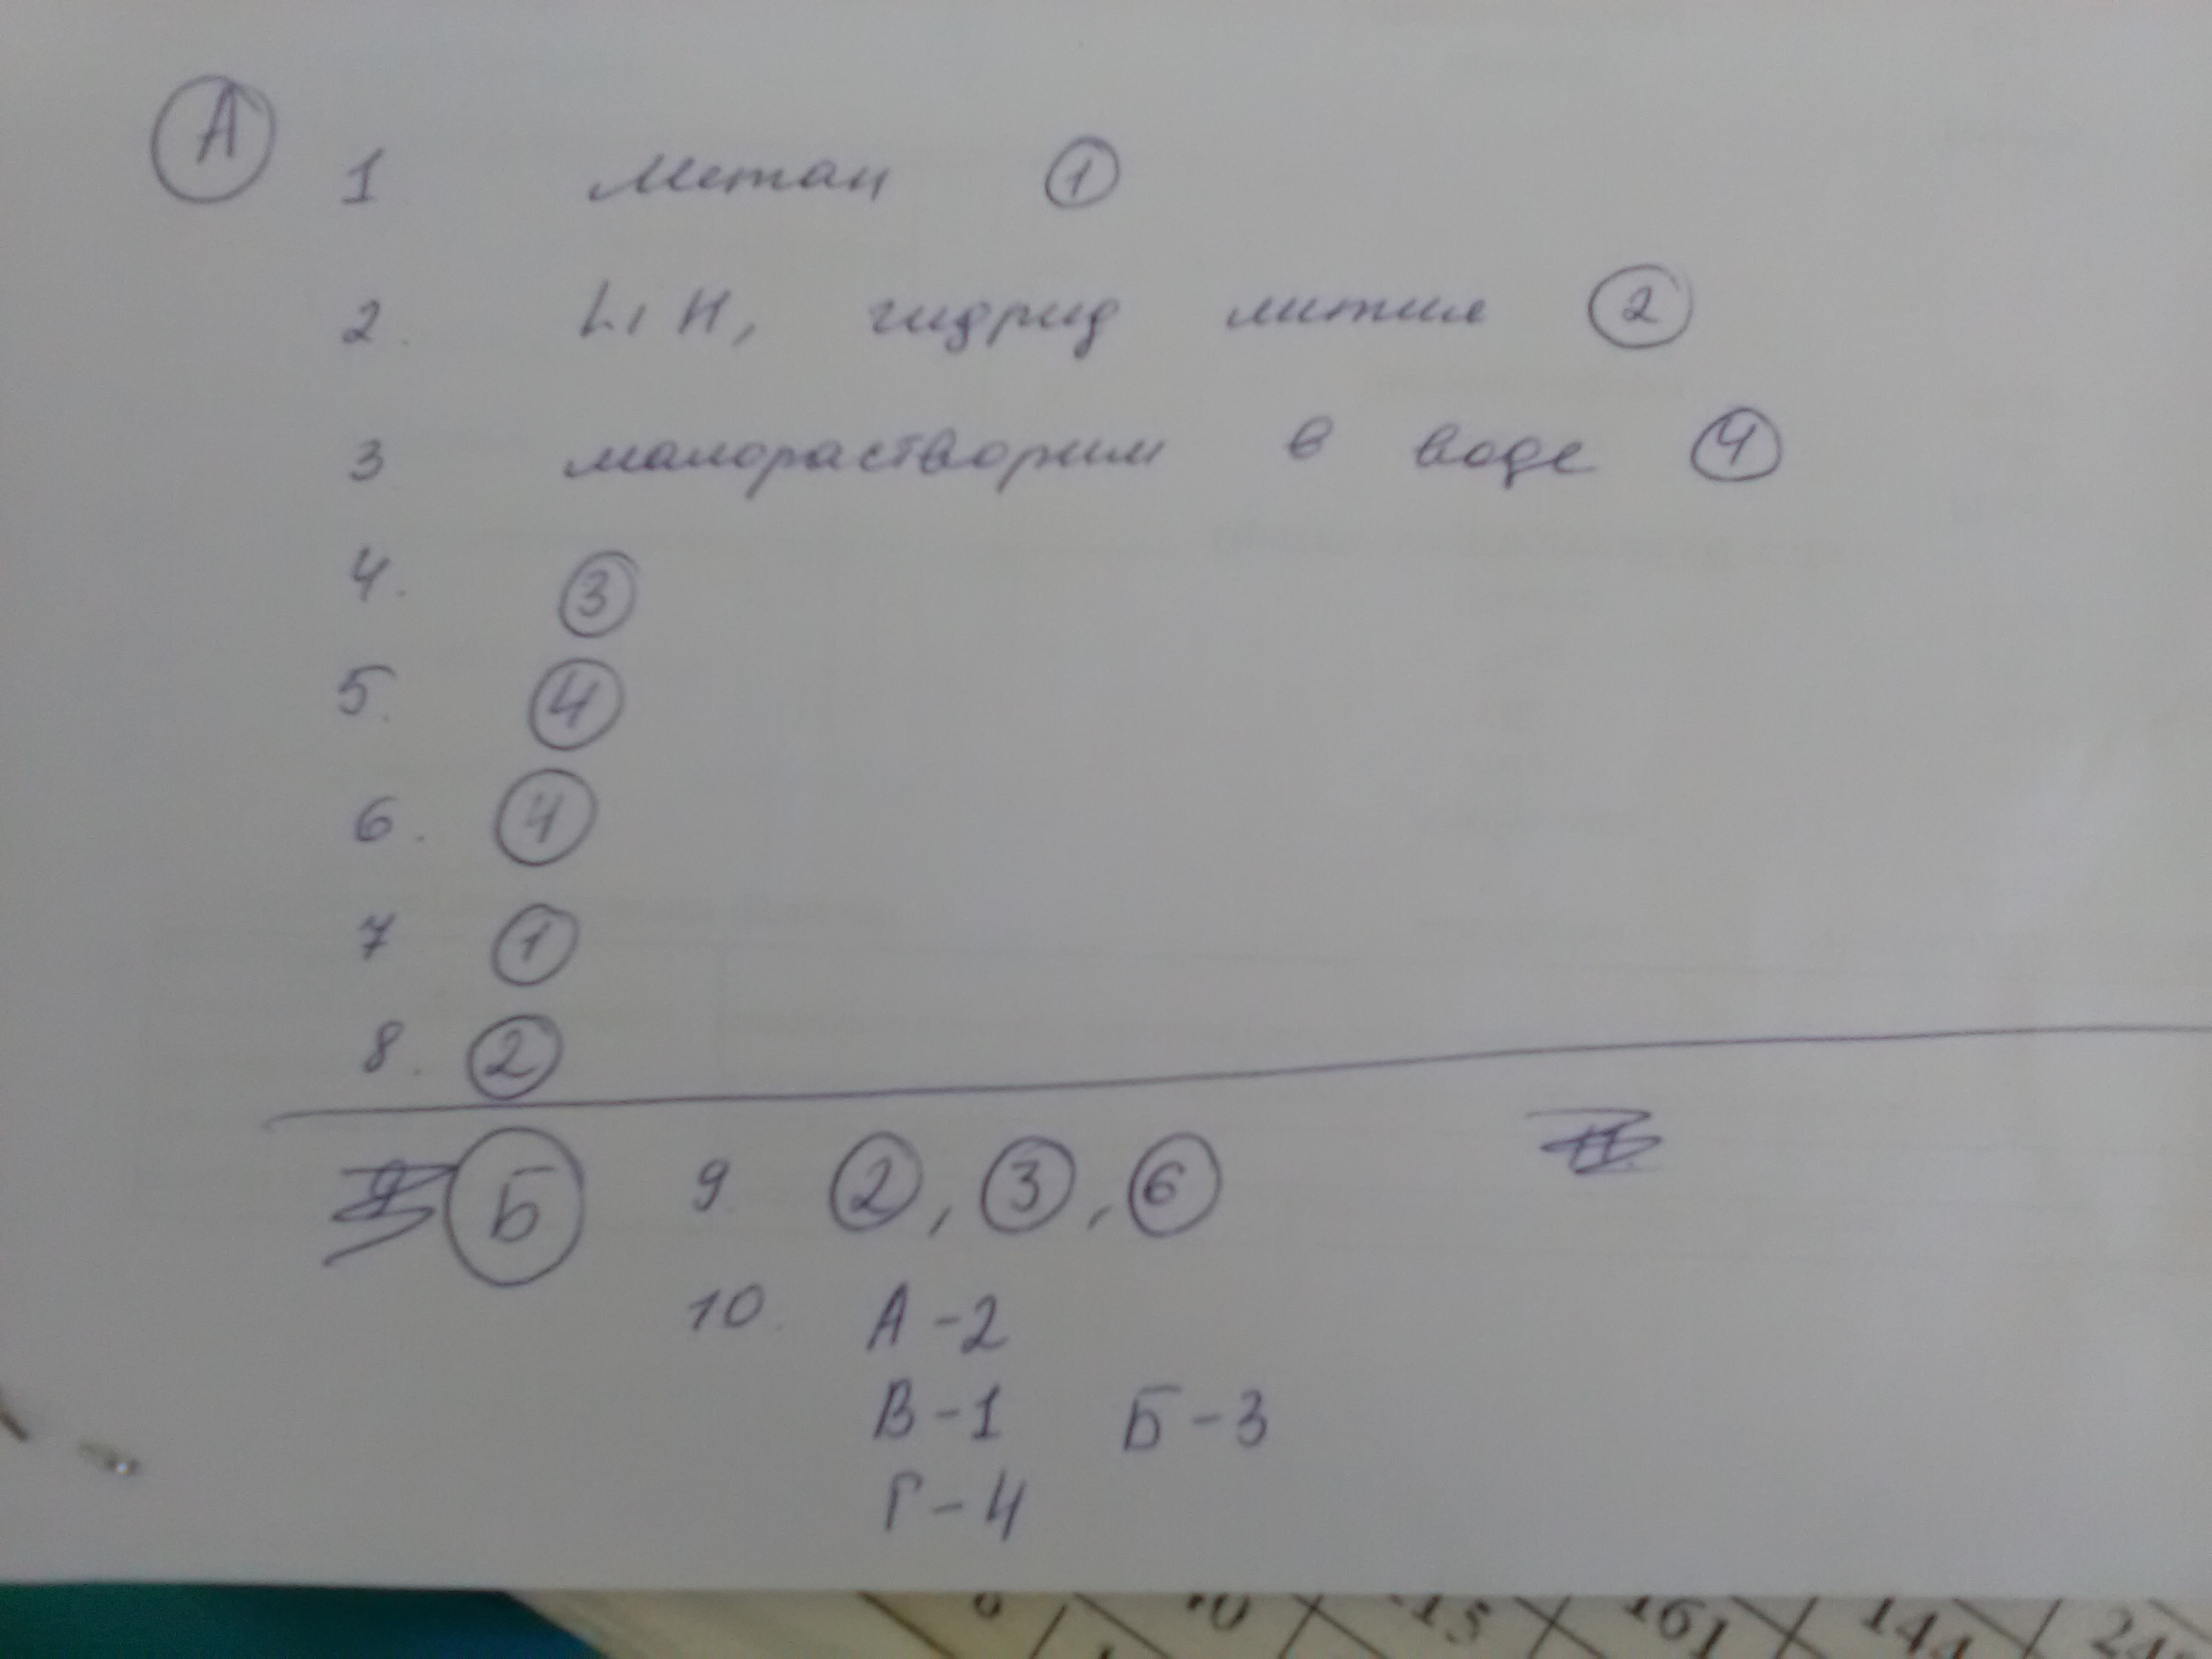 А
1 Метан 1
2. LiH, гидрид лития 2
3 малорастворим в воде 4
4. 3
5. 4
6. 4
7 1
8. 2
Б 9. 2, 3, 6
10. А-2
В-1 Б-3
Г-4
10 15 161 144